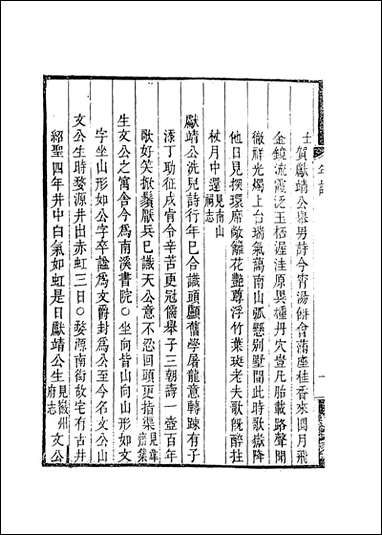 年譜
一
士賀獻靖公舉男詩今宵湯餅會蒲座桂香來閬月飛
金鏡流霞泛玉桮渥洼原異種丹穴豈凡胎載路聲聞
徹祥光燭上台瑞氣藹南山弧懸别墅間此時歌嶽降
他日見探環席敞籬花艷尊浮竹葉斑老夫歌旣醉拄
杖月中還見南山祠志
獻靖公洗兒詩行年巳合識頭顱舊學屠龍意轉疎有子
添丁助征戍肯令辛苦更冠儒舉子三朝壽一壺百年
歌好笑掀鬚厭兵巳識天公意不忍回頭更指渠見韋齋集
生文公之寓舍今爲南溪書院○坐向皆山向山形如文
字坐山形如公字卒諡爲文爵封爲公至今名文公山
文公生時婺源井出赤虹三日○婺源南街故宅有古井
紹聖四年井中白氣如虹是日獻靖公生見徽州府志文公